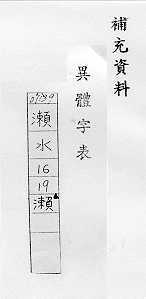 補充資料
異體字表
瀨
水
16
19
瀬